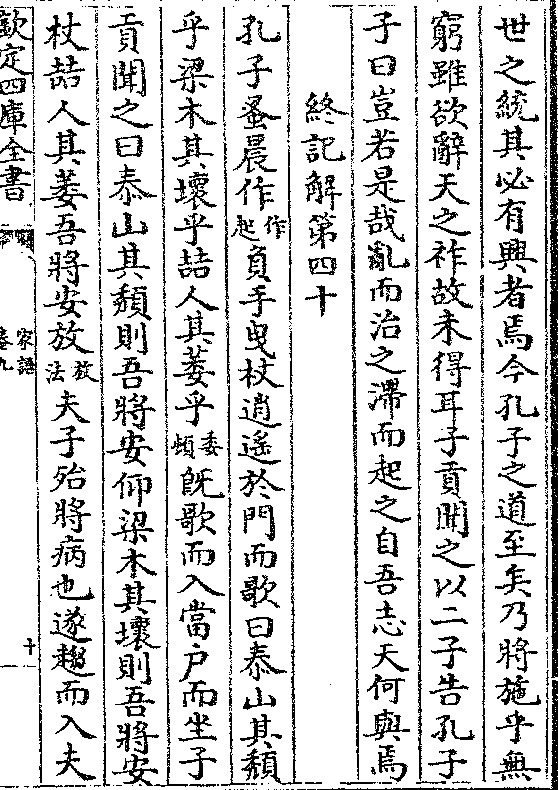 世之統其必有興者焉今孔子之道至矣乃將施乎無
窮雖欲辭天之祚故未得耳子貢聞之以二子告孔子
子曰豈若是哉亂而治之滯而起之自吾志天何與焉
終記解第四十
孔子蚤晨作作起負手曳杖逍遙於門而歌曰泰山其頹
乎梁木其壞乎喆人其萎乎萎頓既歌而入當戶而坐子
貢聞之曰泰山其頹則吾將安仰梁木其壞則吾將安
杖喆人其萎吾將安放放法夫子殆將病也遂趨而入夫
欽定四庫全書
家語
卷九
十